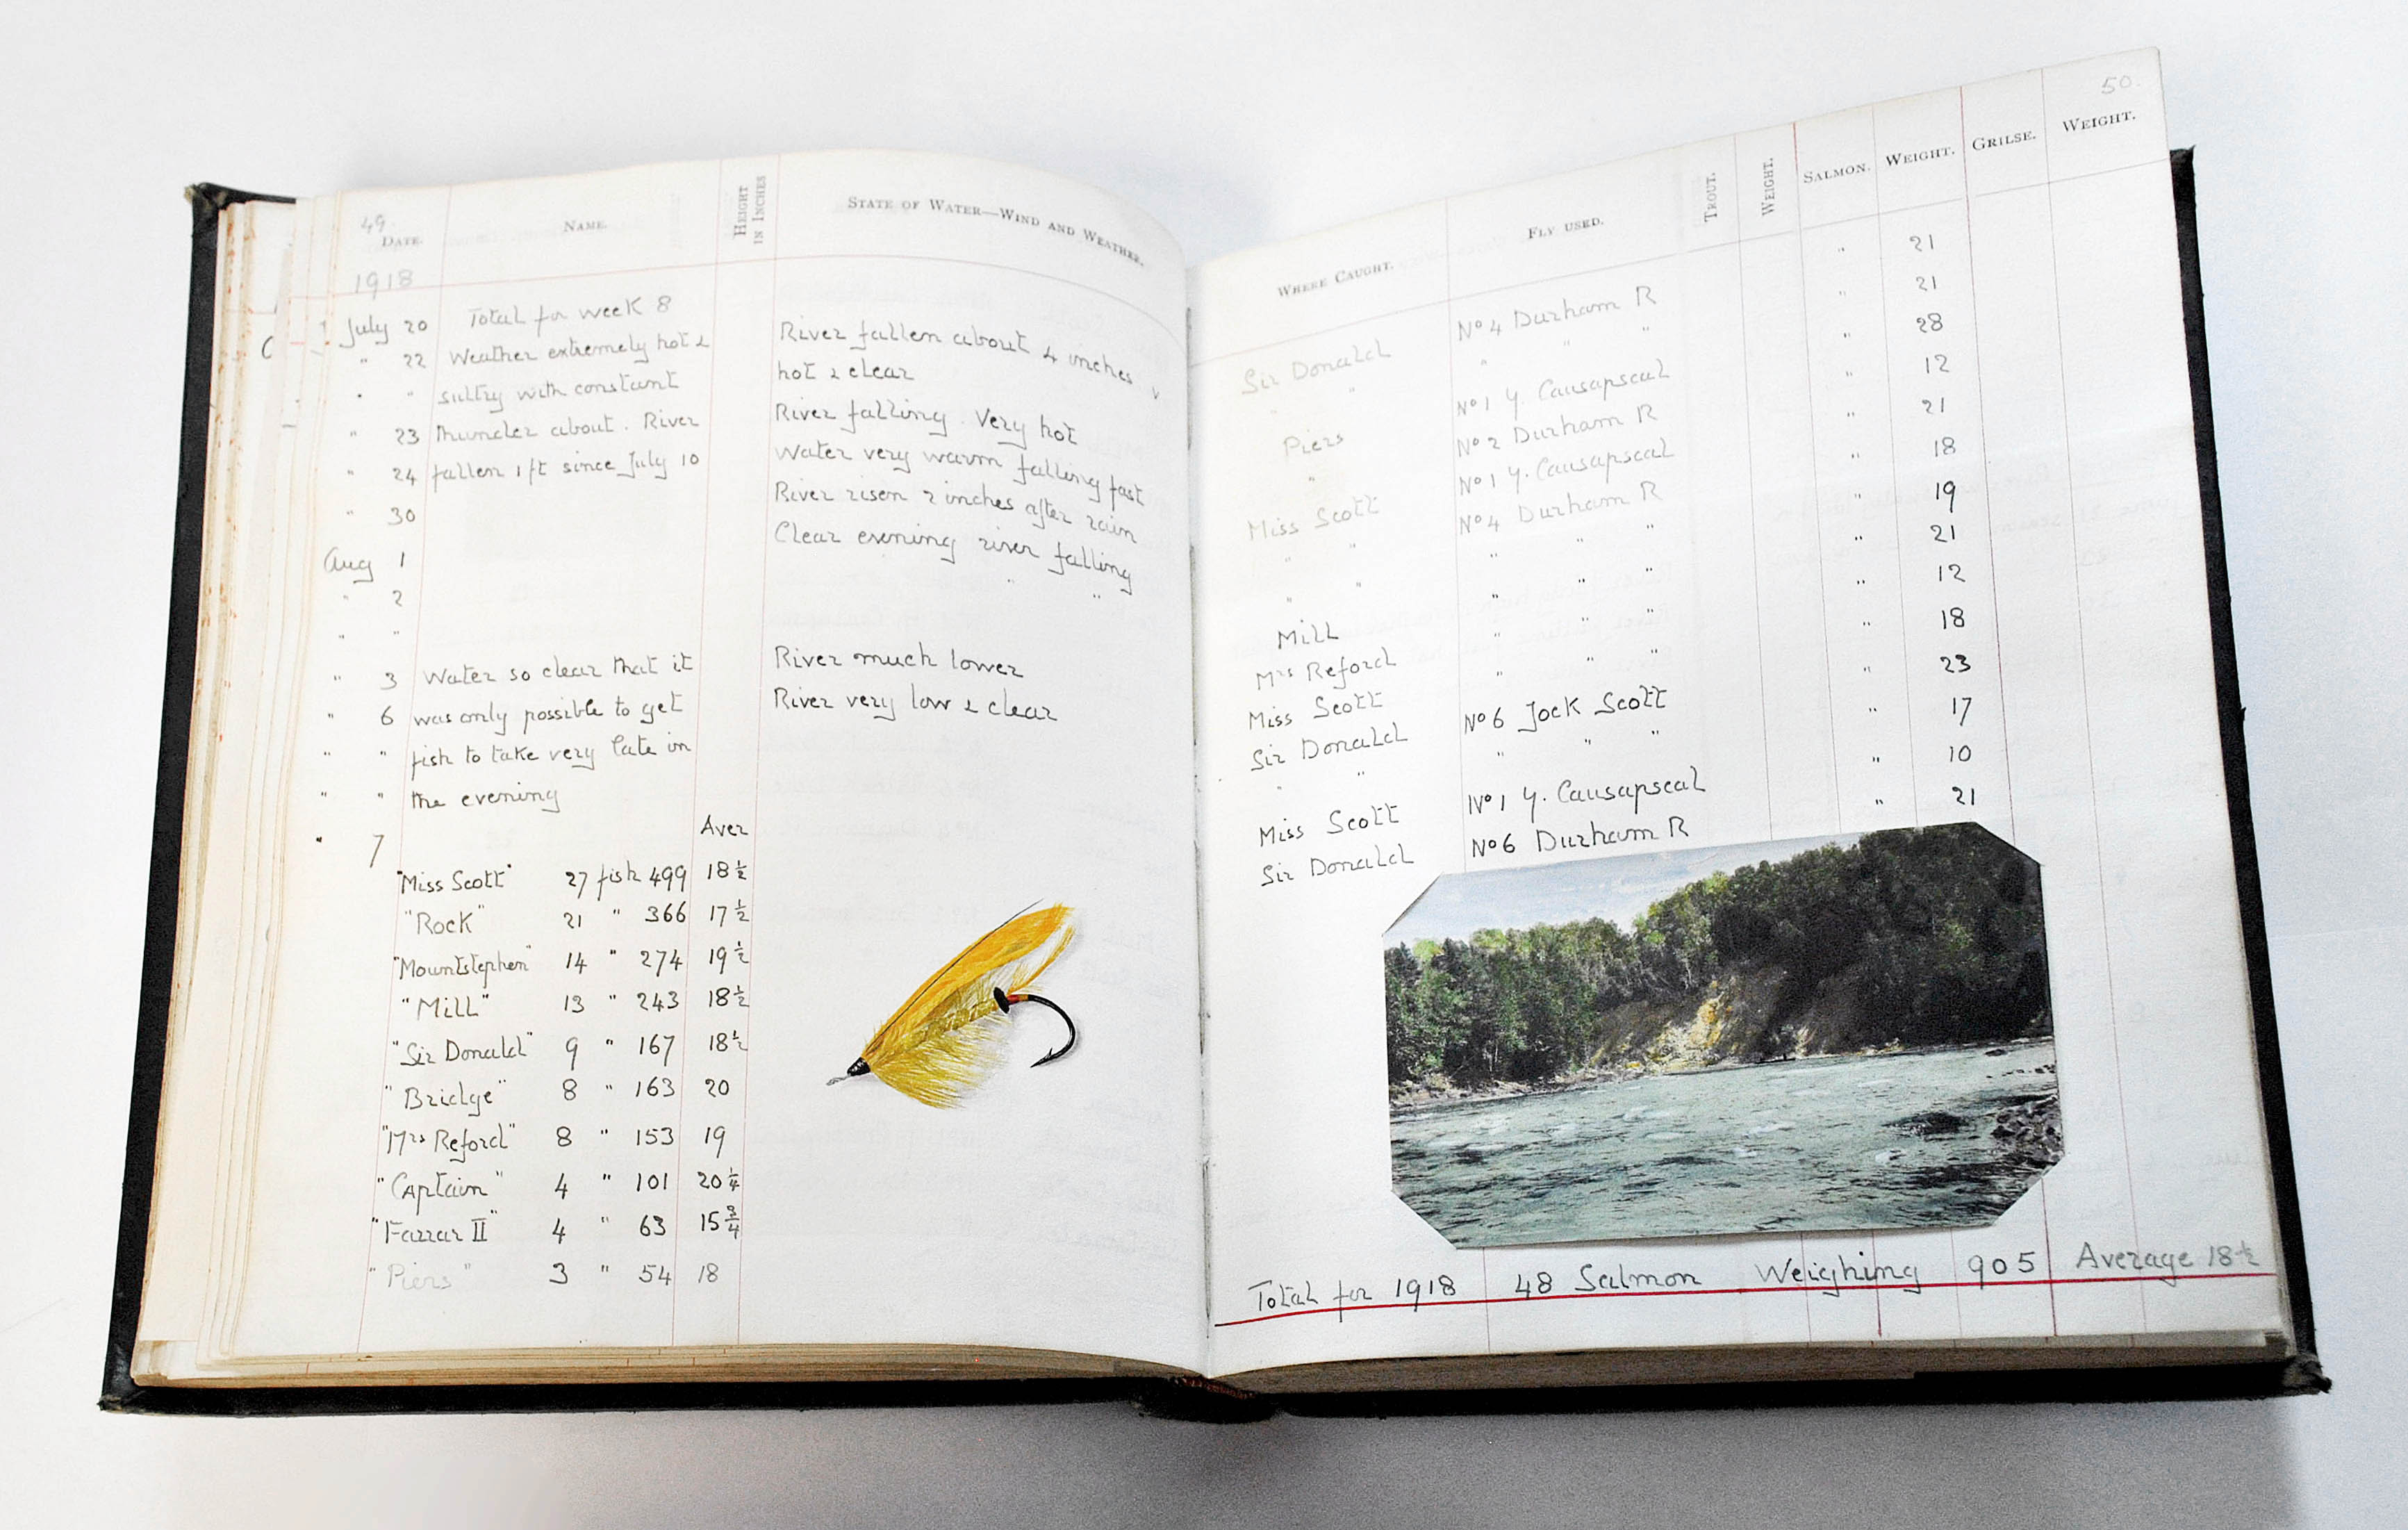 49.
DATE. NAME. HEIGHT IN INCHES STATE OF WATER—WIND AND WEATHER.
1918
July 20 Total for week 8 River fallen about 4 inches
" 22 Weather extremely hot & hot & clear
" " sultry with constant River falling. Very hot
" 23 thunder about. River Water very warm falling fast
" 24 fallen 1 ft since July 10 River risen 2 inches after rain
" 30 Clear evening river falling
Aug 1 " "
" 2
" "
" 3 Water so clear that it River much lower
" 6 was only possible to get River very low & clear
" " fish to take very late in
" " the evening
" 7 Aver
"Miss Scott" 27 fish 499 18½
"Rock" 21 " 366 17½
"Mountstephen" 14 " 274 19½
"Mill" 13 " 243 18½
"Sir Donald" 9 " 167 18½
"Bridge" 8 " 163 20
"Mrs Reford" 8 " 153 19
"Captain" 4 " 101 20¼
"Farrar II" 4 " 63 15¾
"Piers" 3 " 54 18
50.
WHERE CAUGHT. FLY USED. TROUT. WEIGHT. SALMON. WEIGHT. GRILSE. WEIGHT.
Sir Donald No 4 Durham R " 21
" " " " " " 21
Piers No 1 Y. Causapscal " 28
" No 2 Durham R " 12
Miss Scott No 1 Y. Causapscal " 21
" " No 4 Durham R " 18
" " " " " " 19
Mill " " " " 21
Mrs Reford " " " " 12
Miss Scott " " " " 18
Sir Donald No 6 Jock Scott " 23
" " " " " " 17
Miss Scott No 1 Y. Causapscal " 10
Sir Donald No 6 Durham R " 21
Total for 1918 48 Salmon Weighing 905 Average 18½